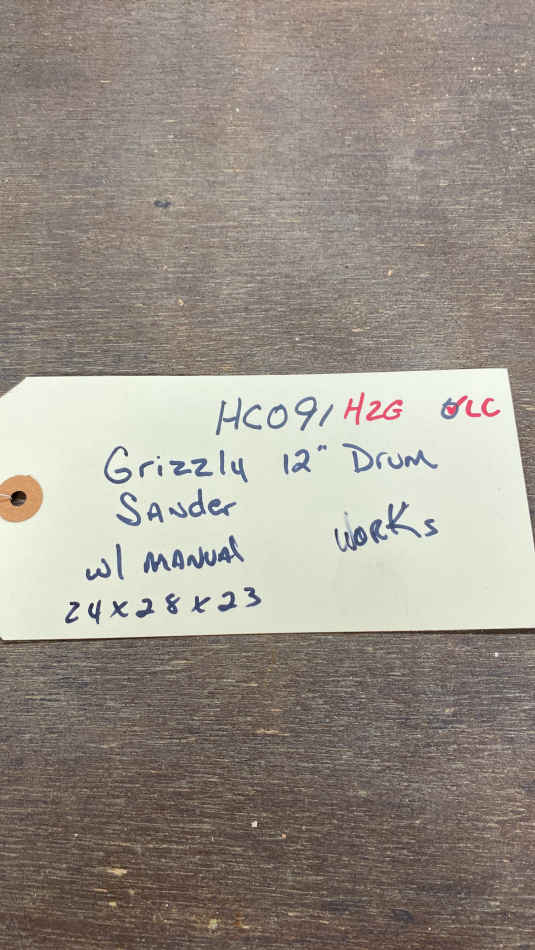 HC091 H2G LC
Grizzly 12" Drum
Sander
Works
w/ MANUAL
24x28x23